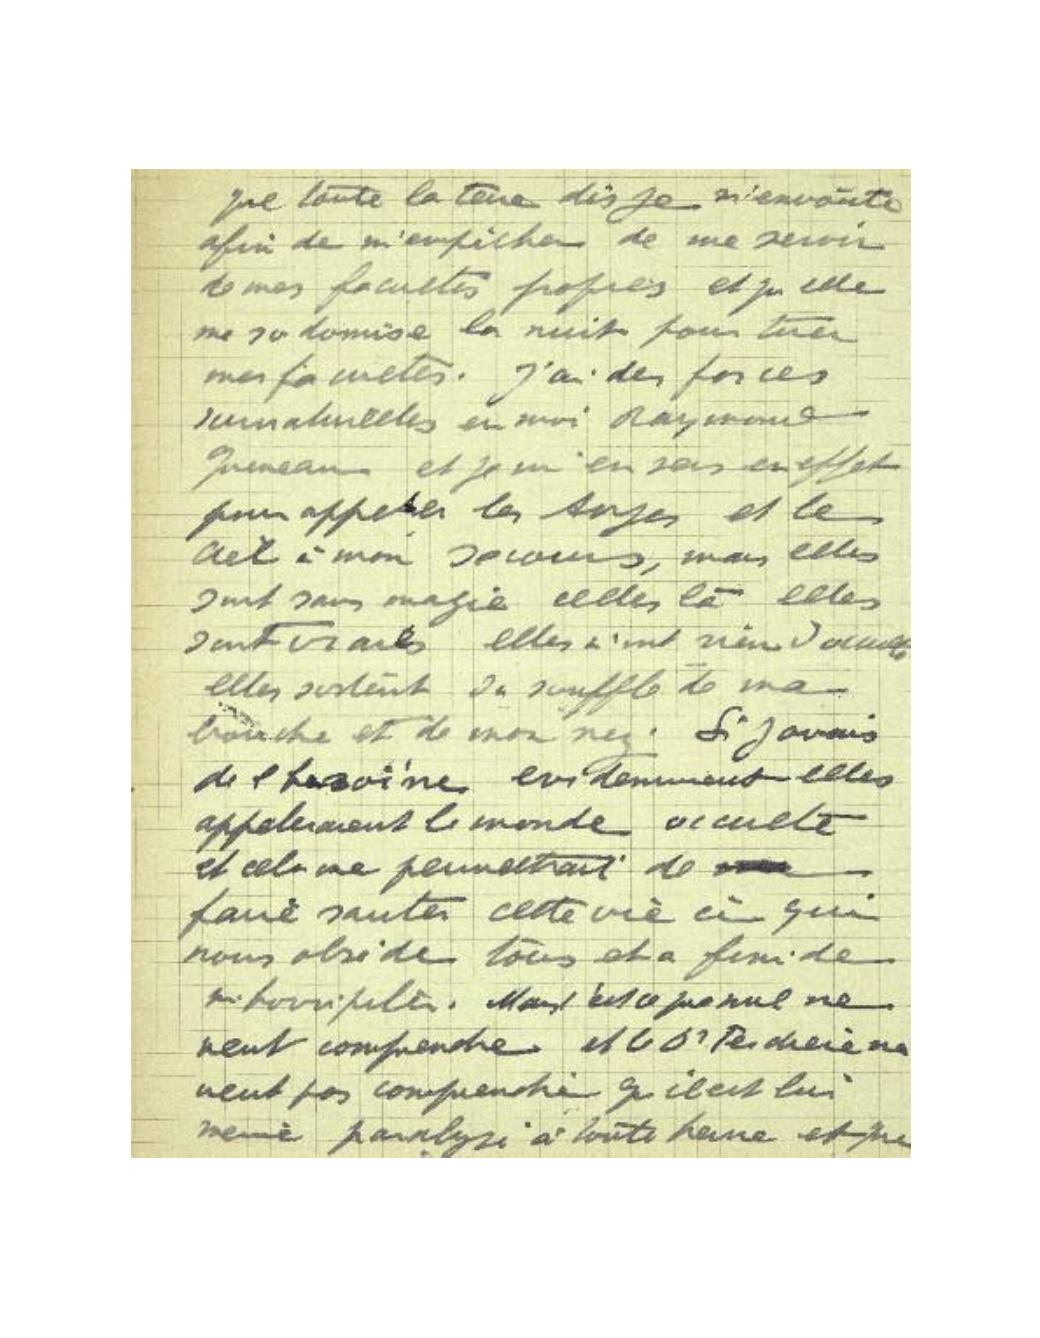 que toute la terre dis je m'envoûte
afin de m'empêcher de me servir
de mes facultés propres et qu elle
me sodomise la nuit pour tuer
mes facultés. J'ai des forces
surnaturelles en moi Raymond
Queneau et je m'en sers en effet
pour appeler les Anges et le
Ciel à mon secours, mais elles
sont sans magie celles là elles
sont vraies elles n'ont rien d'occulte
elles sortent du souffle de ma
bouche et de mon nez. Si j'avais
de l heroïne evidemment elles
appeleraient le monde occulte
et cela me permettrait de
faire sauter cette vie ci qui
nous obside tous et a fini de
m'horripiler. Mais c'est ce que nul ne
veut comprendre et le Dr ne
veut pas comprendre qu il est lui
même paralysé à toute heure et que